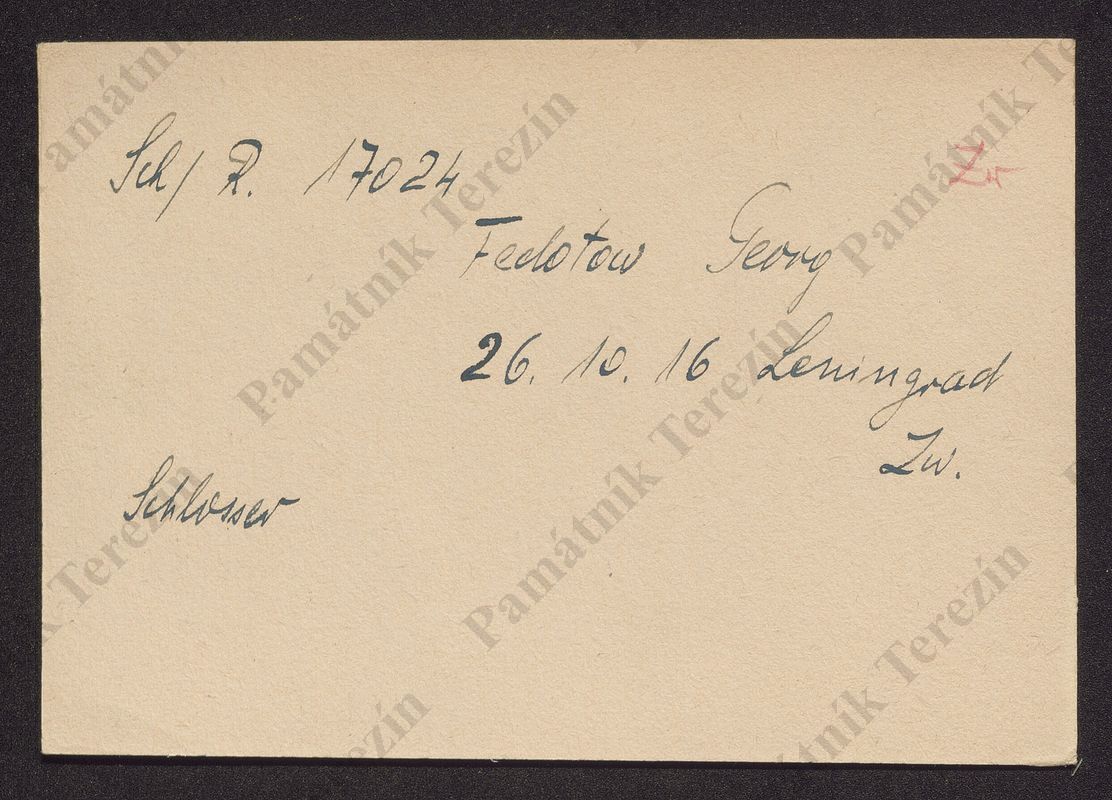 Sch/ R. 17024
Zw
Fedotow Georg
26. 10. 16 Leningrad
Zw.
Schlosser
Památník Terezín
Památník Terezín
Památník Terezín
Památník Terezín
Památník Terezín